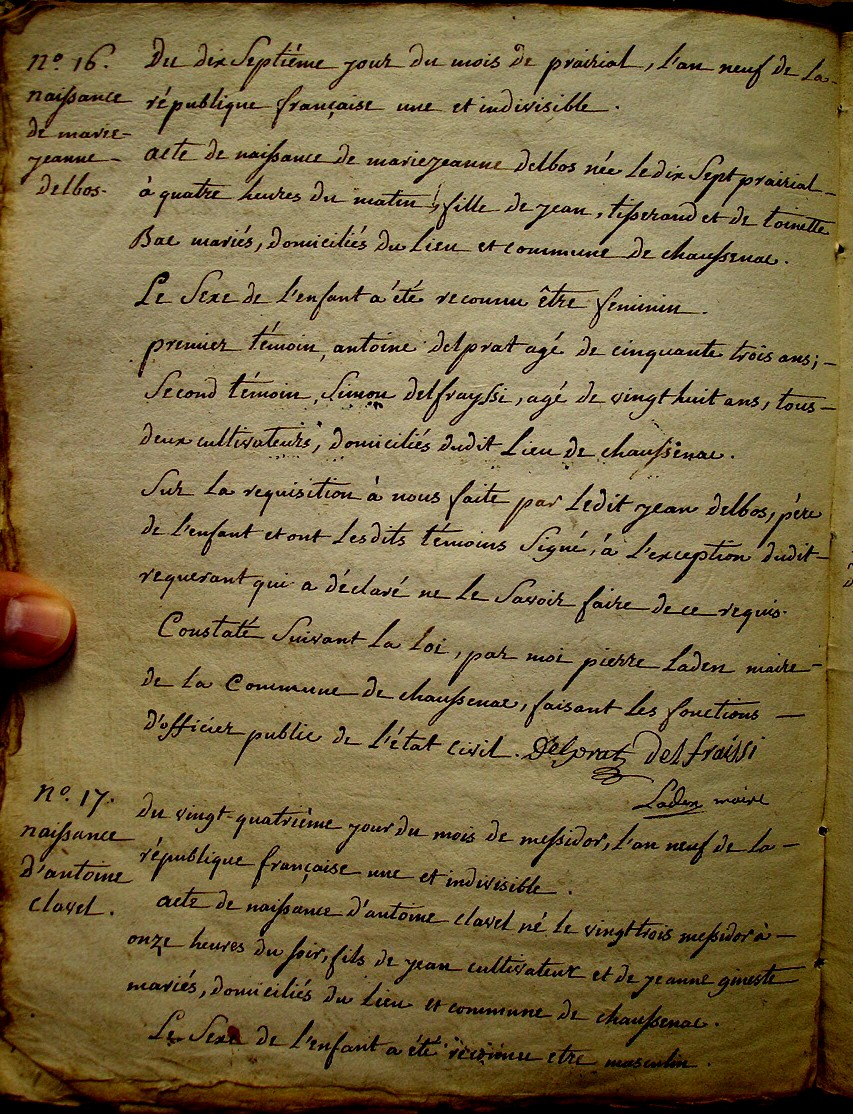 n.º 16.
naissance
de marie-
jeanne
delbos.
Du dix Septiéme jour du mois de prairial, l'an neuf de la
république française une et indivisible.
acte de naissance de marie jeanne delbos née le dix Sept prairial
à quatre heures du matin, fille de jean, tisserand et de toinette
Bac mariés, domiciliés du Lieu et commune de chaussenac.
Le Sexe de l'enfant a été reconnu être feminin.
premier témoin, antoine delprat agé de cinquante trois ans;
Second témoin, Simon delfrayssi, agé de vingt huit ans, tous
deux cultivateurs, domiciliés dudit Lieu de chaussenac.
Sur la requisition à nous faite par ledit jean delbos, père
de l'enfant et ont lesdits témoins Signé, à l'exception dudit
requerant qui a déclaré ne le Savoir faire de ce requis.
Constaté Suivant la loi, par moi pierre Laden maire
de la Commune de chaussenac, faisant les fonctions
d'officier public de l'état civil. Delprat delfraissi
Laden maire
n.º 17.
naissance
d'antoine
clavel.
du vingt-quatrième jour du mois de messidor, l'an neuf de la
république française une et indivisible.
acte de naissance d'antoine clavel né le vingt trois messidor à
onze heures du soir, fils de jean cultivateur et de jeanne gineste
mariés, domiciliés du Lieu et commune de chaussenac.
Le Sexe de l'enfant a été reconnu etre masculin.